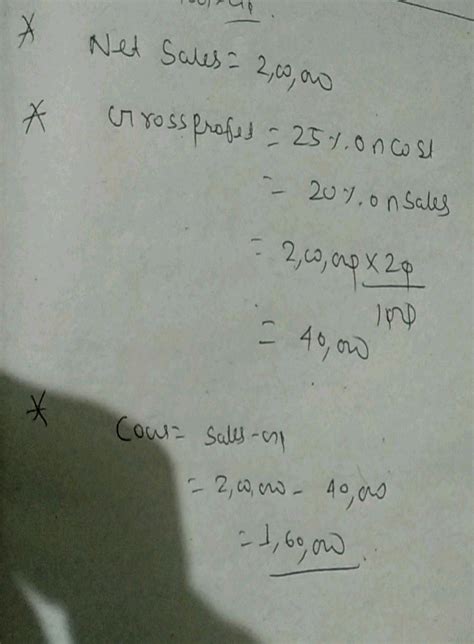 * Net Sales = 2,00,000
* Grossprofit = 25%.on cost
= 20%.on Sales
= 2,00,000 × 20
100
= 40,000
* COGS = Sales - GP
= 2,00,000 - 40,000
= 1,60,000